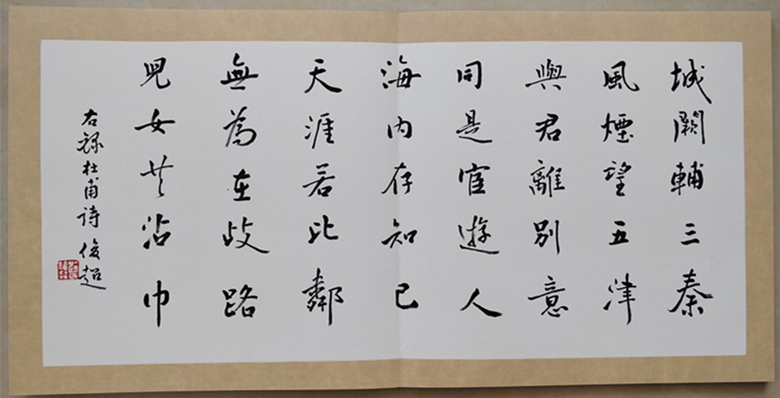 城闕輔三秦
風煙望五津
與君離別意
同是宦遊人
海內存知己
天涯若比鄰
無為在歧路
兒女共沾巾
右錄杜甫詩 俊超